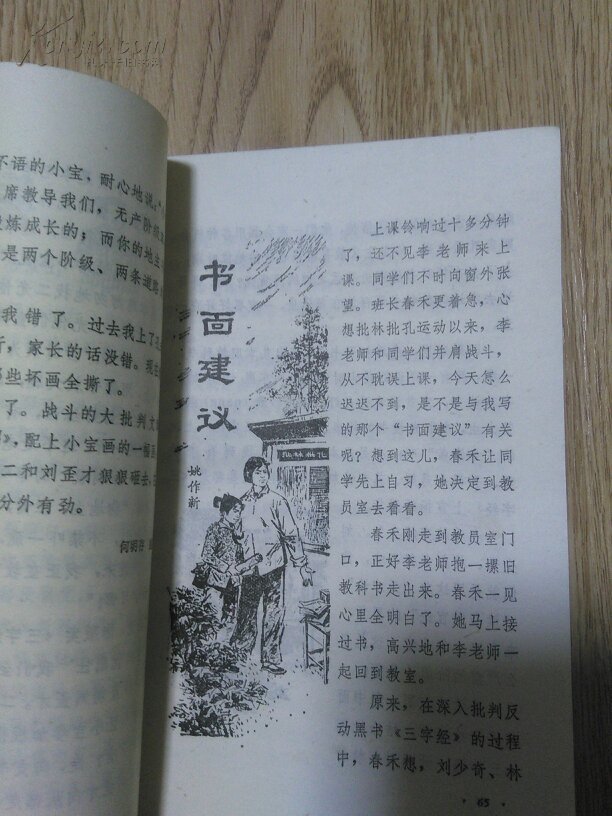 不语的小宝，耐心地说：
席教导我们，无产阶级
炼成长的；而你的地主
是两个阶级、两条道路
我错了。过去我上了
，家长的话没错。现在
那些坏画全撕了。
了。战斗的大批判文
》，配上小宝画的一幅
二和刘歪才狠狠砸去，
分外有劲。
何明
书面建议
姚作新
上课铃响过十多分钟
了，还不见李老师来上
课。同学们不时向窗外张
望。班长春禾更着急，心
想批林批孔运动以来，李
老师和同学们并肩战斗，
从不耽误上课，今天怎么
迟迟不到，是不是与我写
的那个“书面建议”有关
呢？想到这儿，春禾让同
学先上自习，她决定到教
员室去看看。
春禾刚走到教员室门
口，正好李老师抱一摞旧
教科书走出来。春禾一见
心里全明白了。她马上接
过书，高兴地和李老师一
起回到教室。
原来，在深入批判反
动黑书《三字经》的过程
中，春禾想，刘少奇、林
· 65 ·